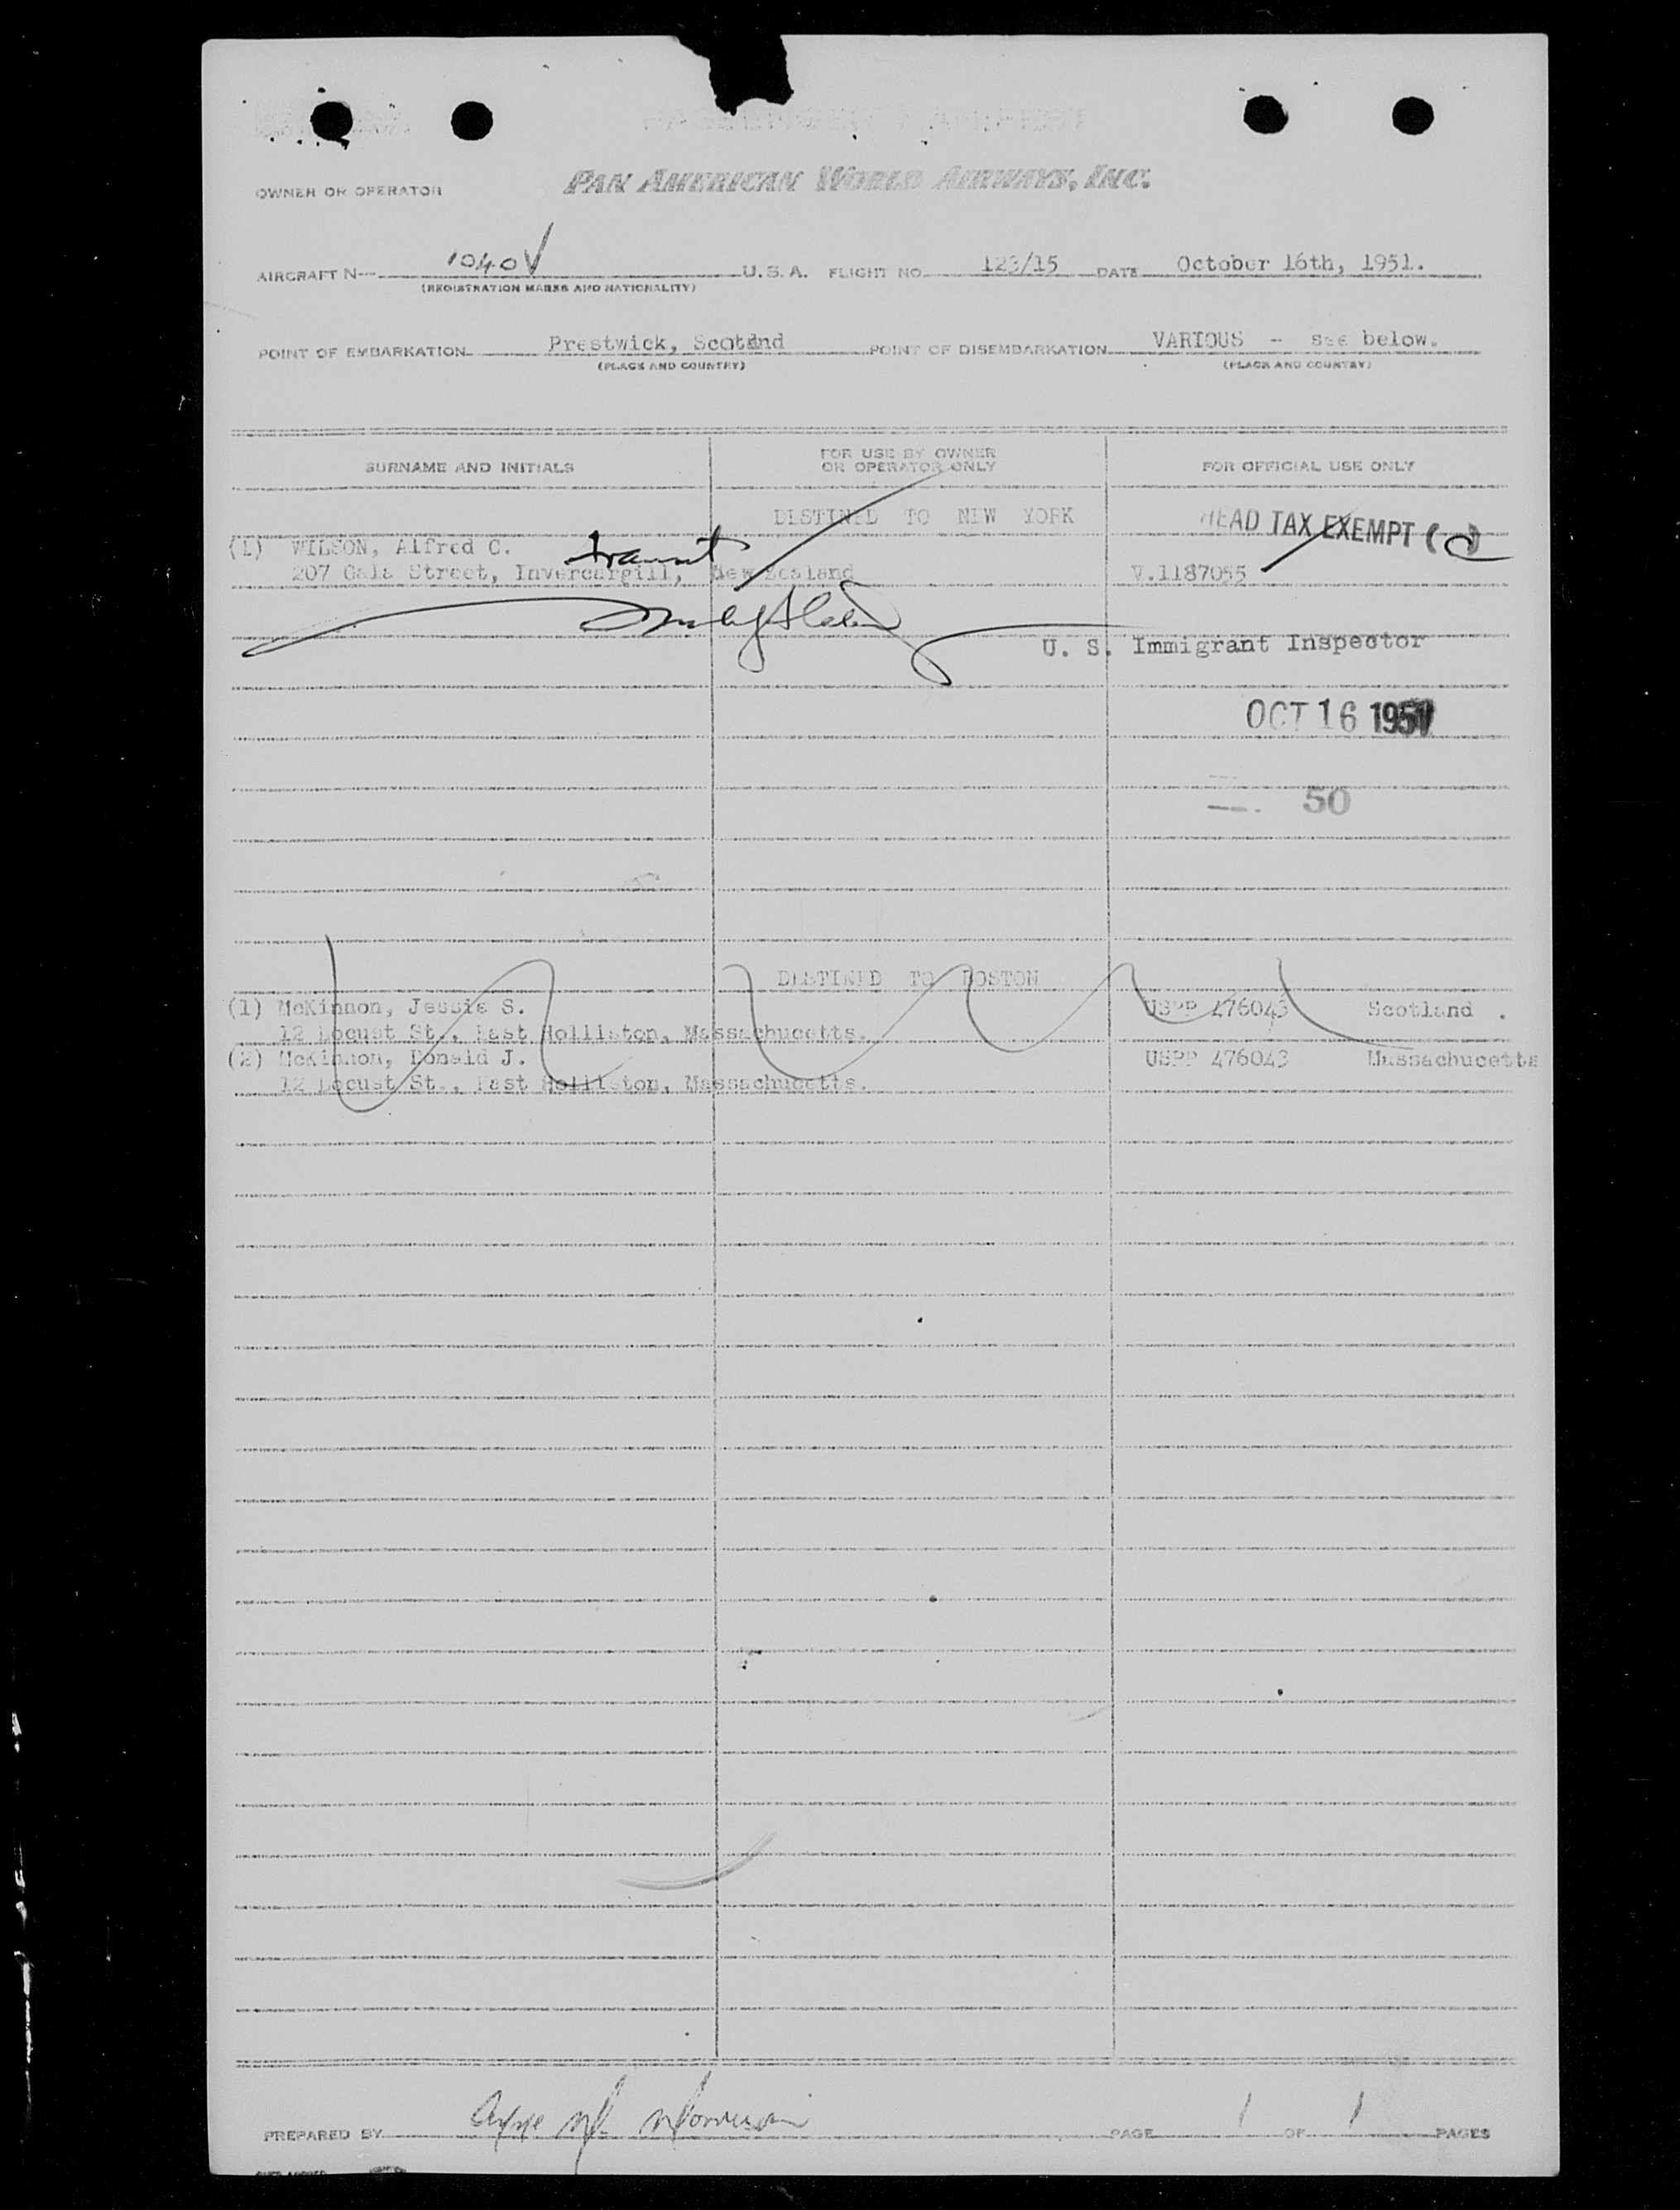 OWNER OR OPERATOR PAN AMERICAN WORLD AIRWAYS, INC.
AIRCRAFT N— 1040V U. S. A. FLIGHT NO. 123/15 DATE October 16th, 1951.
(REGISTRATION MARKS AND NATIONALITY)
POINT OF EMBARKATION Prestwick, Scotand POINT OF DISEMBARKATION VARIOUS - see below.
(PLACE AND COUNTRY) (PLACE AND COUNTRY)
SURNAME AND INITIALS FOR USE BY OWNER OR OPERATOR ONLY FOR OFFICIAL USE ONLY
DESTINED TO NEW YORK HEAD TAX EXEMPT
(1) WILSON, Alfred C. transit
207 Gala Street, Invercargill, New Zealand V.1187055
U. S. Immigrant Inspector
OCT 16 1951
50
DESTINED TO BOSTON
(1) McKinnon, Jessie S. USPP 476043 Scotland .
12 Locust St., East Holliston, Massachucetts.
(2) McKinnon, Donald J. USPP 476043 Massachucetts
12 Locust St., East Holliston, Massachucetts.
PREPARED BY PAGE 1 OF 1 PAGES